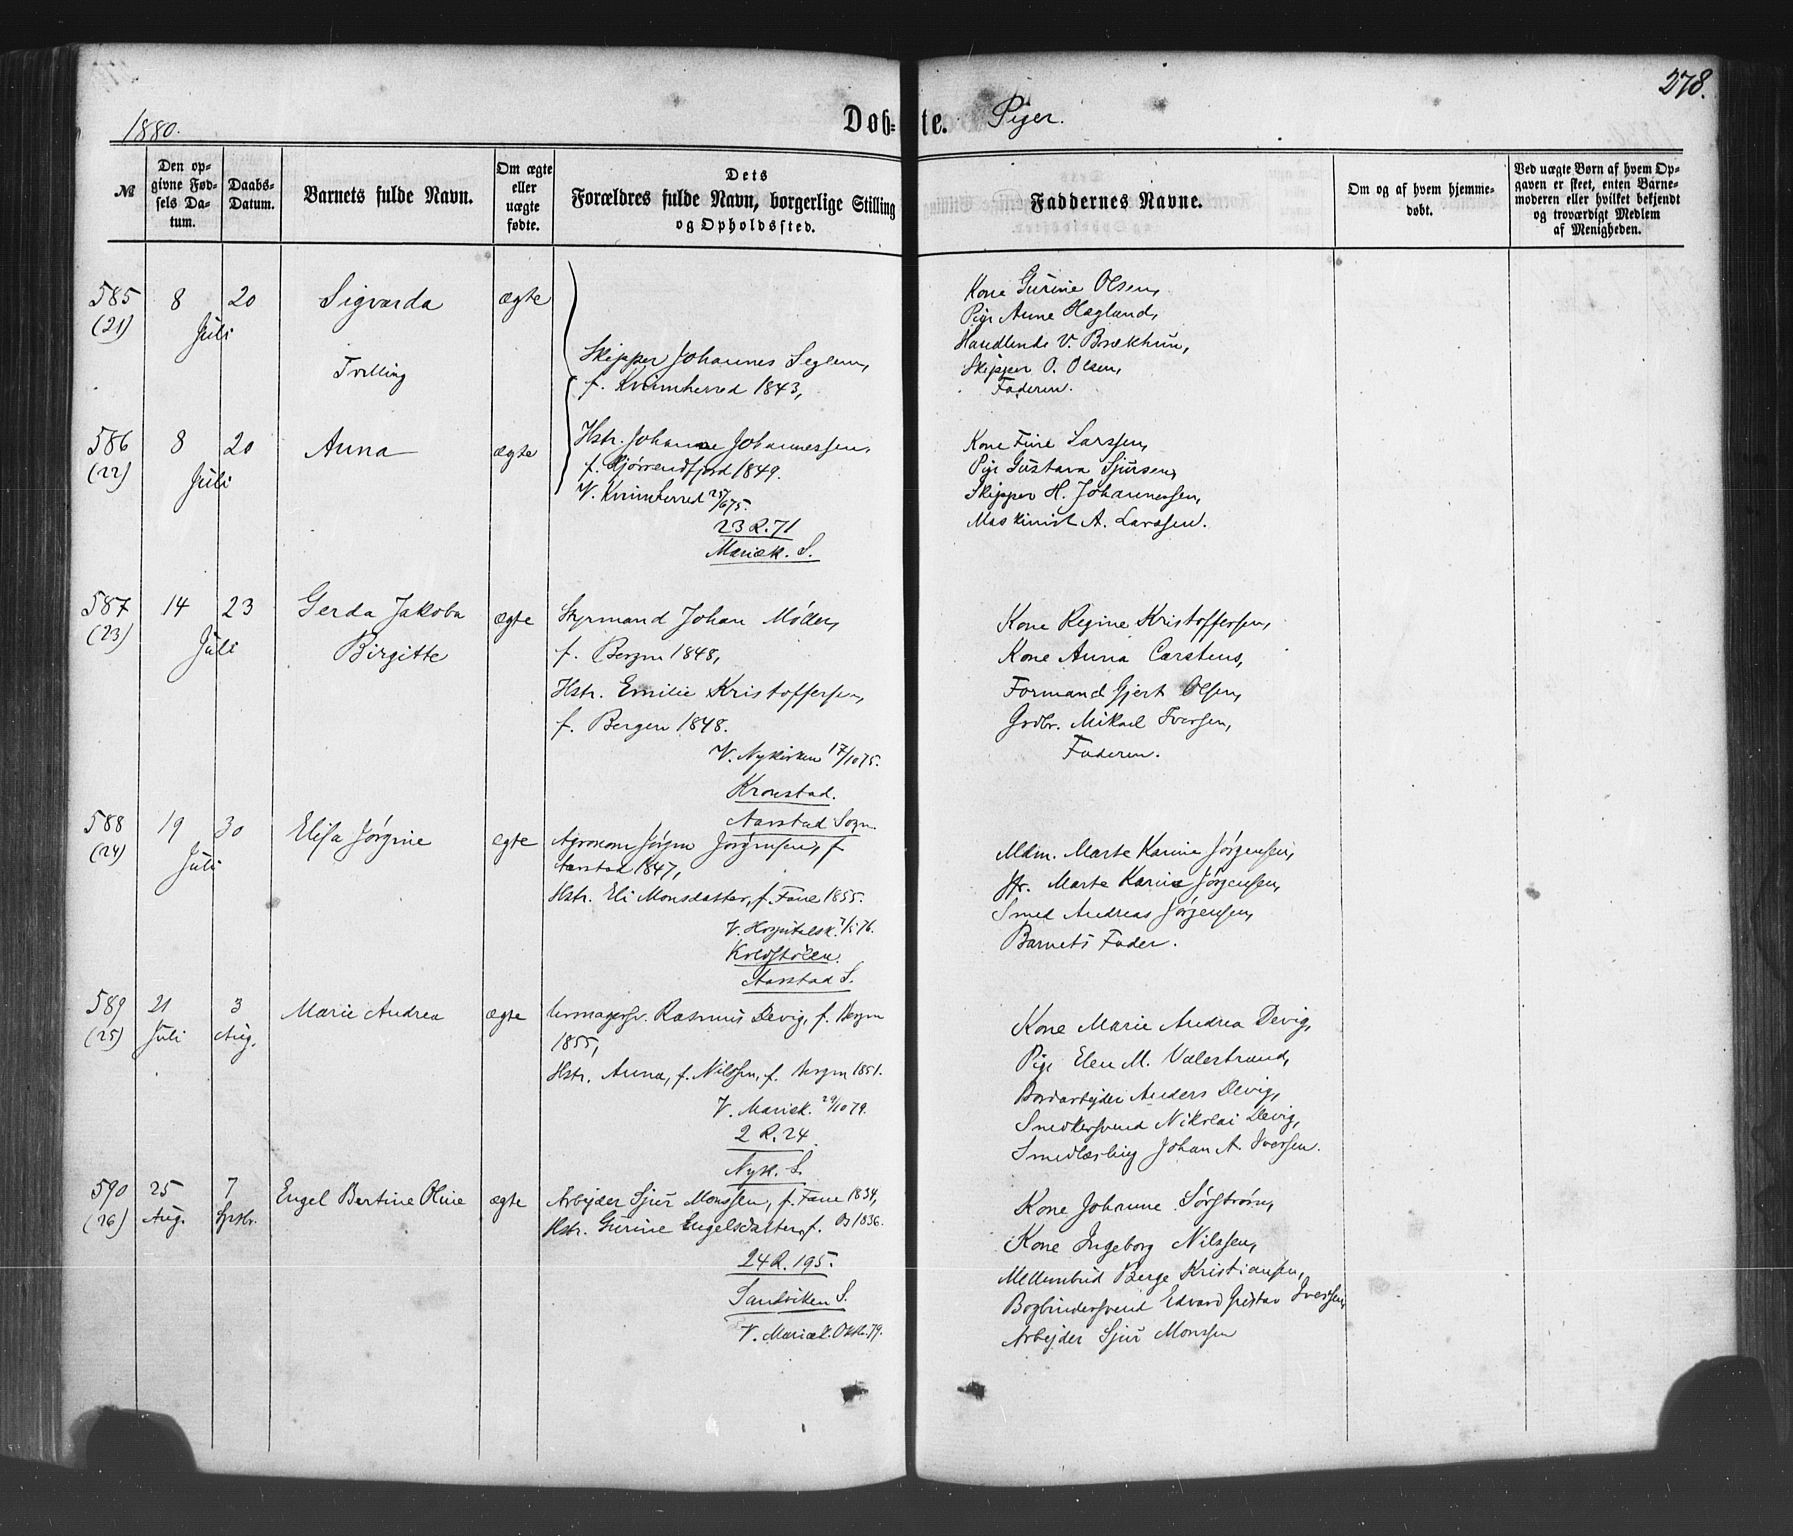 278.
1880.
Døb=te. Piger.
№
Den opgivne Fødsels Datum.
Daabs-Datum.
Barnets fulde Navn.
Om ægte eller uægte fødte.
Dets Forældres fulde Navn, borgerlige Stilling og Opholdssted.
Faddernes Navne.
Om og af hvem hjemmedøbt.
Ved uægte Børn af hvem Opgaven er skeet, enten Barnemoderen eller hvilket bekjendt og troværdigt Medlem af Menigheden.
585 (21)
8 20 Juli
Sigvarda
Tvilling
ægte
Skipper Johannes Seglem,
f. Kvinnherred 1843,
Kone Gurine Olsen,
Pige Anne Hagland,
Handlende V. Brækhus,
Skipper O. Olsen,
Faderen.
586 (22)
8 20 Juli
Anna
ægte
Hstr. Johanne Johannessen,
f. 1849.
V. Kvinnherred 25/6 75.
23 R. 71
Mariæk. S.
Kone Larssen,
Pige Gustava Sjursen,
Skipper H. Johannessen,
Maskinist A. Larssen.
587 (23)
14 23 Juli
Gerda Jakoba
Birgitte
ægte
Styrmand Johan Møller,
f. Bergen 1848,
Hstr. Emilie Kristoffersen,
f. Bergen 1848.
V. Nykirken 17/10 75.
Kronstad.
Aarstad Sogn.
Kone Regine Kristoffersen,
Kone Anna Carstens,
Formand Gjert Olsen,
Grdbr. Mikael Iversen,
Faderen.
588 (24)
19 30 Juli
Elisa Jørgine
ægte
Agronom Jørgen Jørgensen, f.
Aarstad 1847,
Hstr. Eli Monsdatter, f. Fane 1855.
V. Hospitalsk. 76.
Koldstølen.
Aarstad S.
Mdm. Marte Karine Jørgensen,
Jfr. Marte Karine Jørgensen,
Smed Andreas Jørgensen,
Barnets Fader.
589 (25)
21 Juli
3 Aug.
Marie Andrea
ægte
Urmagersv. Rasmus Devig, f. Bergen
1855,
Hstr. Anna, f. Nilssen, f. Bergen 1851.
V. Mariæk. 29/10 79.
2 R. 24
Nyk. S.
Kone Marie Andrea Devig,
Pige Elen M. Valestrand,
Bordarbejder Anders Devig,
Snedkersvend Nikolai Devig,
Smedlærling Johan A. Iversen.
590 (26)
25 Aug.
7 Septbr.
Engel Bertine Oline
ægte
Arbejder Sjur Monssen, f. Fane 1834,
Hstr. Gurine Engelsdatter, f. Os 1836.
24 R. 195.
Sandviken S.
V. Mariæk. Oktb. 79.
Kone Johanne Sørstrøm,
Kone Ingeborg Nilssen,
Mellembud Berge Kristiansen,
Bogbindersvend Edvard Gustav Iversen,
Arbejder Sjur Monssen